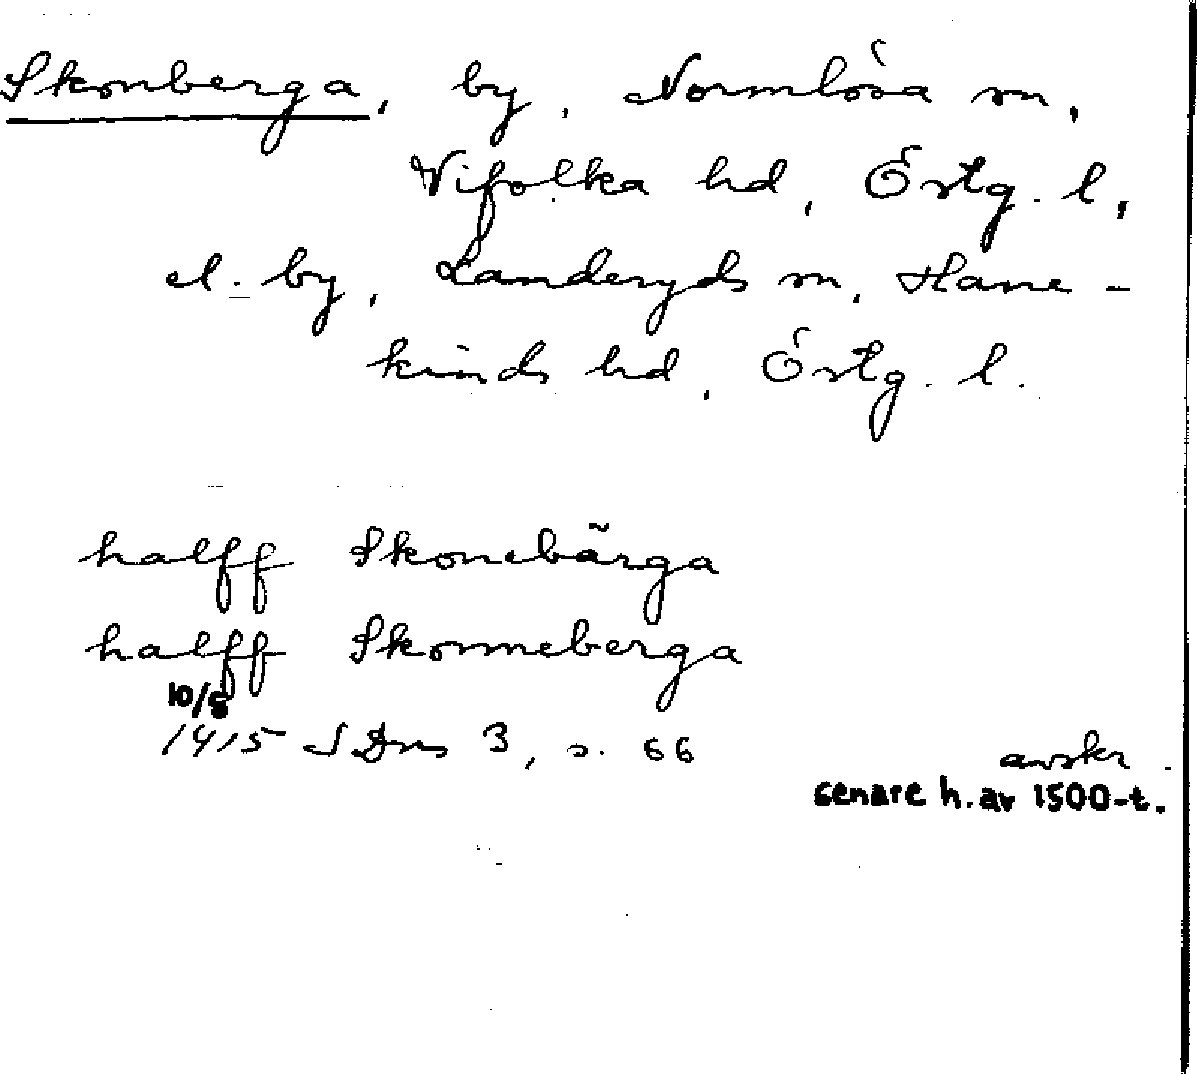 Skonberga, by, Normlösa sn,
Vifolka hd, Östg. l,
el. by, Landeryds sn, Hane-
kinds hd, Östg. l.
halff Skonebärga
halff Skonneberga
10/8
1415 SDns 3, s. 66
avskr.
senare h. av 1500-t.